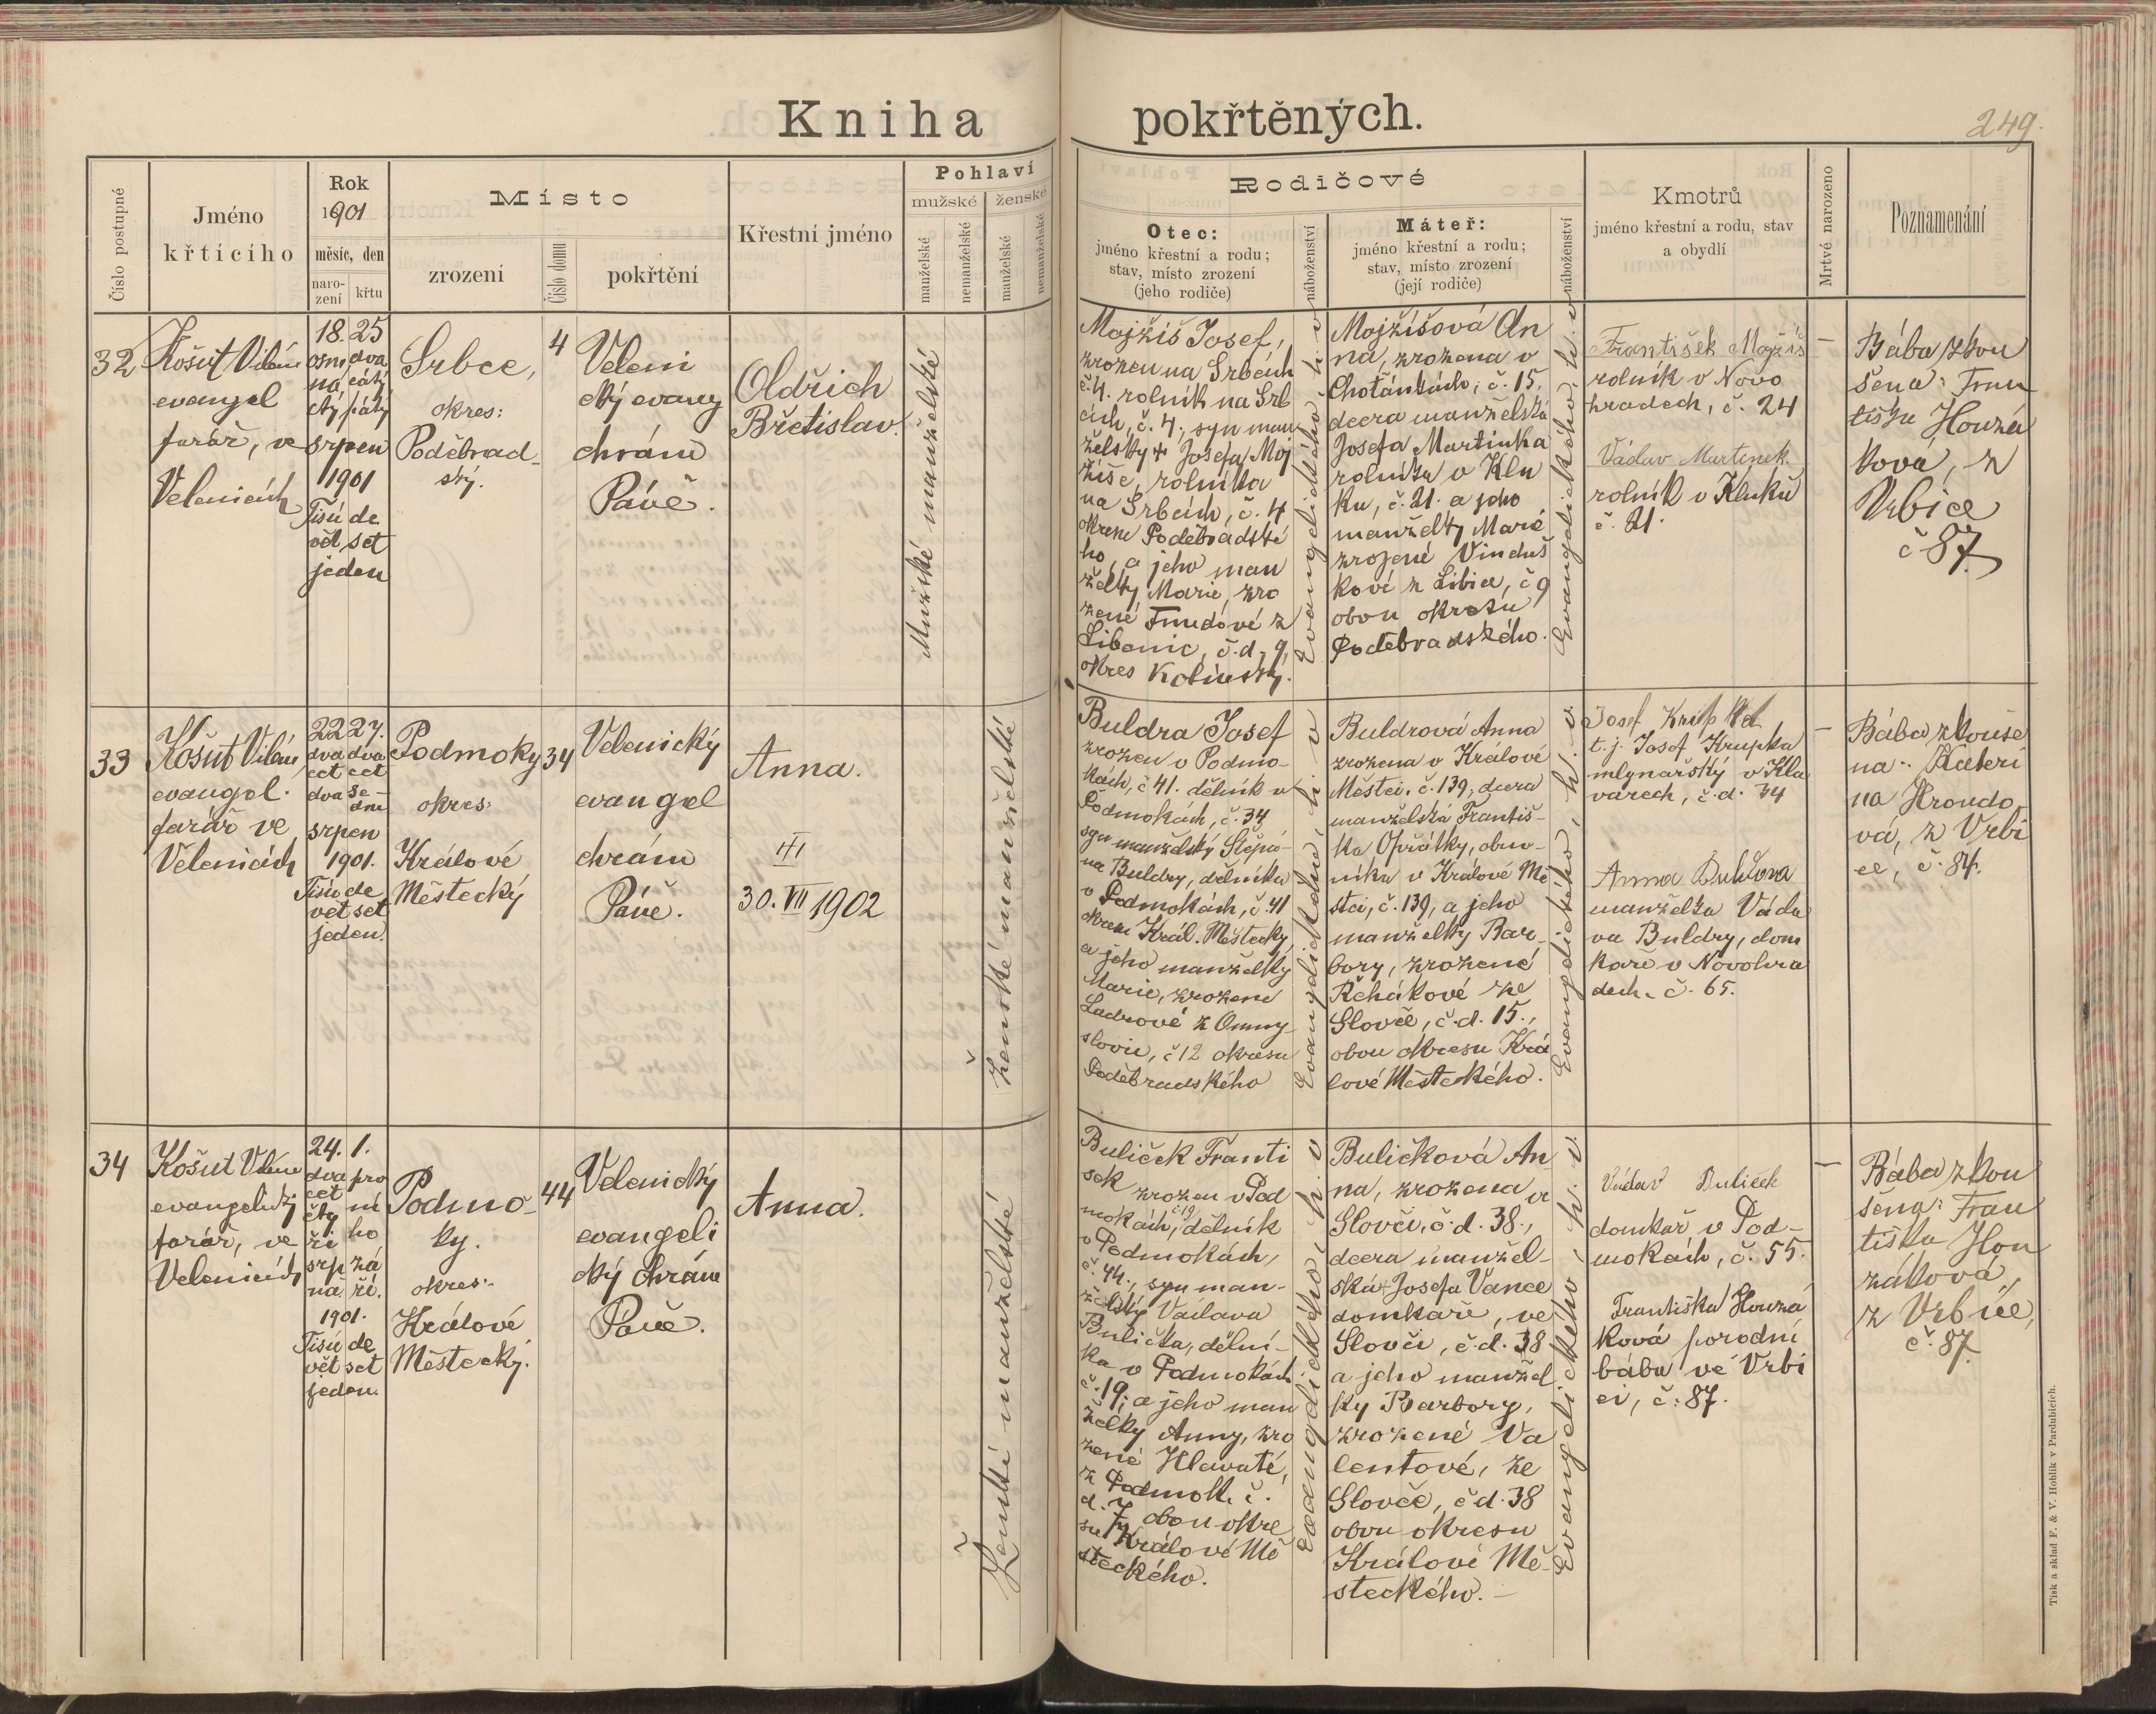 Kniha pokřtěných.
249.
Číslo postupné
Jméno
křtícího
Rok
1901
měsíc, den
naro-
zení
křtu
Místo
zrození
Číslo domu
pokřtění
Křestní jméno
Pohlaví
mužské
ženské
manželské
nemanželské
manželské
nemanželské
Rodičové
Otec:
jméno křestní a rodu;
stav, místo zrození
(jeho rodiče)
náboženství
Máteř:
jméno křestní a rodu;
stav, místo zrození
(její rodiče)
náboženství
Kmotrů
jméno křestní a rodu, stav
a obydlí
Mrtvě narozeno
Poznamenání
32
Košut Vilém
evangel
farář, ve
Velenicích
18. 25
osm dva
ná cátý
ctý pátý
srpen
1901
Tisíc de
vět set
jeden
Srbce,
okres:
Poděbrad-
ský.
4
Veleni
cký evang
chrám
Páně.
Oldřich
Břetislav.
Mužské manželské
Mojžíš Josef,
zrozen na Srbcích
č. 4. rolník na Srb
cích, č. 4, syn man
želský + Josefa Moj
žíše, rolníka
na Srbcích, č. 4
okresu Poděbradské
ho, a jeho man
želky Marie, zro
zené Fmudové z
Libenic, č. d. 9,
okres Kolínský.
Evangelického h. v.
Mojžíšová An
na, zrozena v
Choťánkách, č. 15.
dcera manželská
Josefa Martinka
rolníka v Klu
ku, č. 21. a jeho
manželky Marie
zrozené Vinduš
kové z Libice, č 9
obou okresu
Poděbradského.
Evangelického h. v.
František Mojžíš
rolník v Novo
hradech, č. 24
Václav Martinek.
rolník v Kluku
č. 21.
–
Bába zkou
šená: Fran
tiška Houzá
ková, z
Vrbice
č 87.
33
Košut Vilém
evangel.
farář ve
Velenicích
22 27.
dva dva
cet cet
dva se-
dm
srpen
1901.
Tisíc de
vět set
jeden.
Podmoky
okres:
Králové
Městecký
34
Velenický
evangel
chrám
Páně.
Anna.
III
30. VII 1902
ženské manželské
Buldra Josef
zrozen v Podmo-
kách, č 41. dělník v
Podmokách, č. 34
syn manželský Štěpá-
na Buldry, dělníka
v Podmokách, č. 41
okresu Král. Městecký,
a jeho manželky
Marie, zrozené
Ladrové z Opolany
slovic, č 12 okresu
Poděbradského
Evangelického, h. v
Buldrová Anna
zrozena v Králové
Městci, č. 139, dcera
manželská Františ-
ka Opřátky, obuv-
níka v Králové Mě
stci, č. 139, a jeho
manželky Bar-
bory, zrozené
Řehákové ze
Slovče, č. d. 15.,
obou okresu Krá
lové Městeckého.
Evangelického, h. v.
t. j. Josef Krupka
mlynářský v Kla
varech, č. d. 34
Anna Buldrova
manželka Václa
va Buldry, dom
káře v Novohra
dech. č. 65.
–
Bába zkouše
na: Kateři
na Hroudo
vá, z Vrbi
ce, č. 84.
34
Košut Vilém
evangelický
farář, ve
Velenicích
24. 1.
dva pro
cet ní
čty ho
ři zá
srp ří.
na
1901.
Tisíc de
vět set
jeden.
Podmo-
ky.
okres:
Králové
Městecký.
44
Velenický
evangeli
cký chrám
Páně.
Anna.
Ženské manželské
Bulíček Franti
šek zrozen v Pod
mokách, č 19, dělník
v Podmokách,
č. 44., syn man-
želský Václava
Bulíčka, dělní-
ka v Podmokách
č. 19, a jeho man
želky Anny, zro
zené Hlavaté,
z Podmok. č.
d. 7, obou okre
su Králové Mě
steckého.
Evangelického, h. v
Bulíčková An
na, zrozena ve
Slovči, č. d. 38.,
dcera manžel-
ská Josefa Vance
domkáře, ve
Slovči, č. d. 38
a jeho manžel
ky Barbory,
zrozené Va
lentové, ze
Slovče, č d. 38
obou okresu
Králové Mě-
steckého. –
Evangelického, h. v.
Václav Bulíček
domkář v Pod-
mokách, č. 55.
Františka Houzá
ková porodní
bába ve Vrbi
ci, č. 87.
–
Bába zkou
šená: Fran
tiška Hou
záková,
z Vrbice,
č. 87.
Tisk a sklad F. & V. Hoblík v Pardubicích.